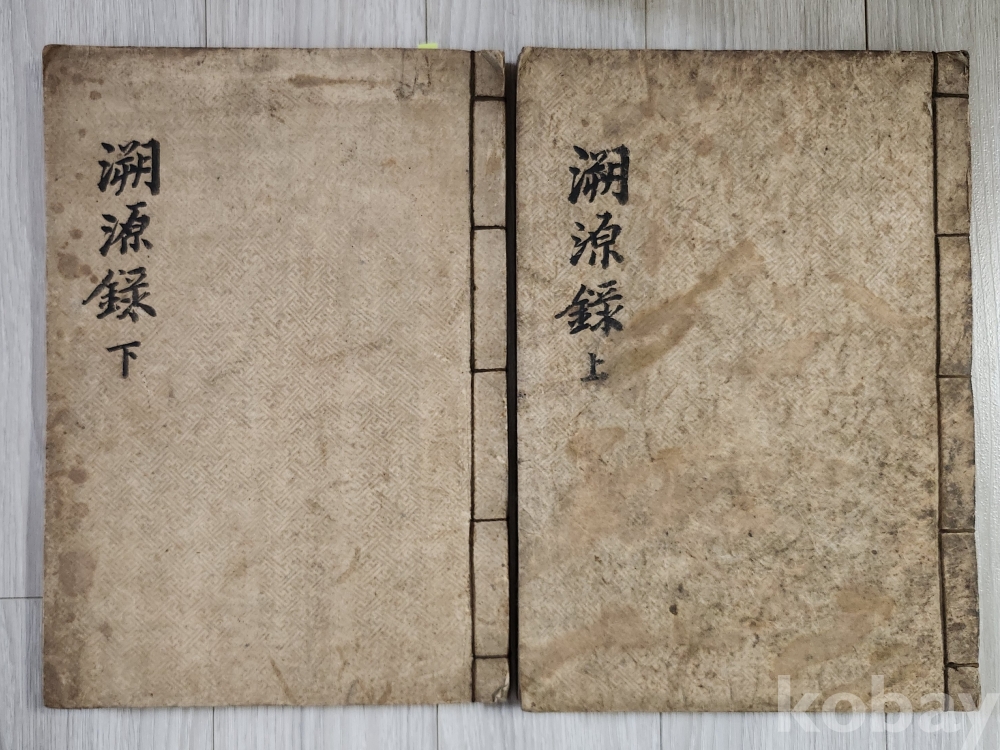 溯源錄 上
溯源錄 下
kobay